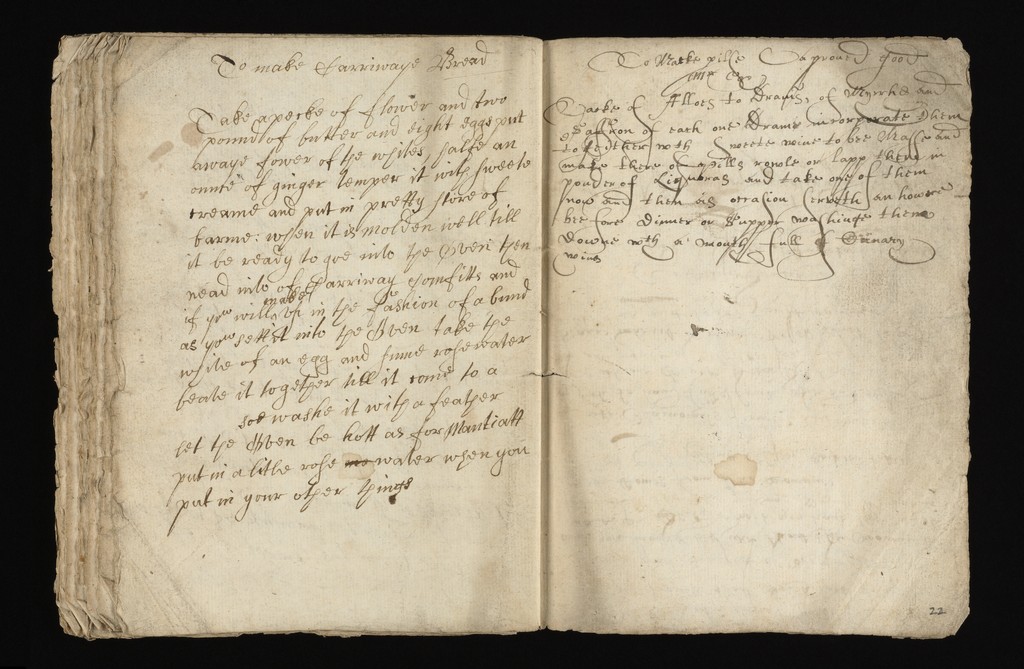 To make Carriwaye Bread
Take a pecke of flower and two
pound of butter and eight eggs put
awaye fower of the whites halfe an
ounce of ginger temper it with sweete
creame and put in pretty store of
barme: when it is molden well till
it be ready to goe into the Oven then
nead into it Carriway Comfitts and
if you will make it in the fashion of a bund
as you sett it into the Oven take the
white of an egg and sume rosewater
beate it together till it come to a
washe it with a feather
let the Oven be hott as for
put in a litle rose water when you
put in your other things
To Make pills Aproued good
Take of Alloes to drams, of Myrrhe and
Saffron of each one dram incorporate them
together wth sweete wine to bee Masse and
make there of pills rowle or lapp them in
pouder of and take one of them
now and then as occasion serveth an howre
beefore dinner or Supper washinge them
downe wth a mouth full of Canary
wine
22